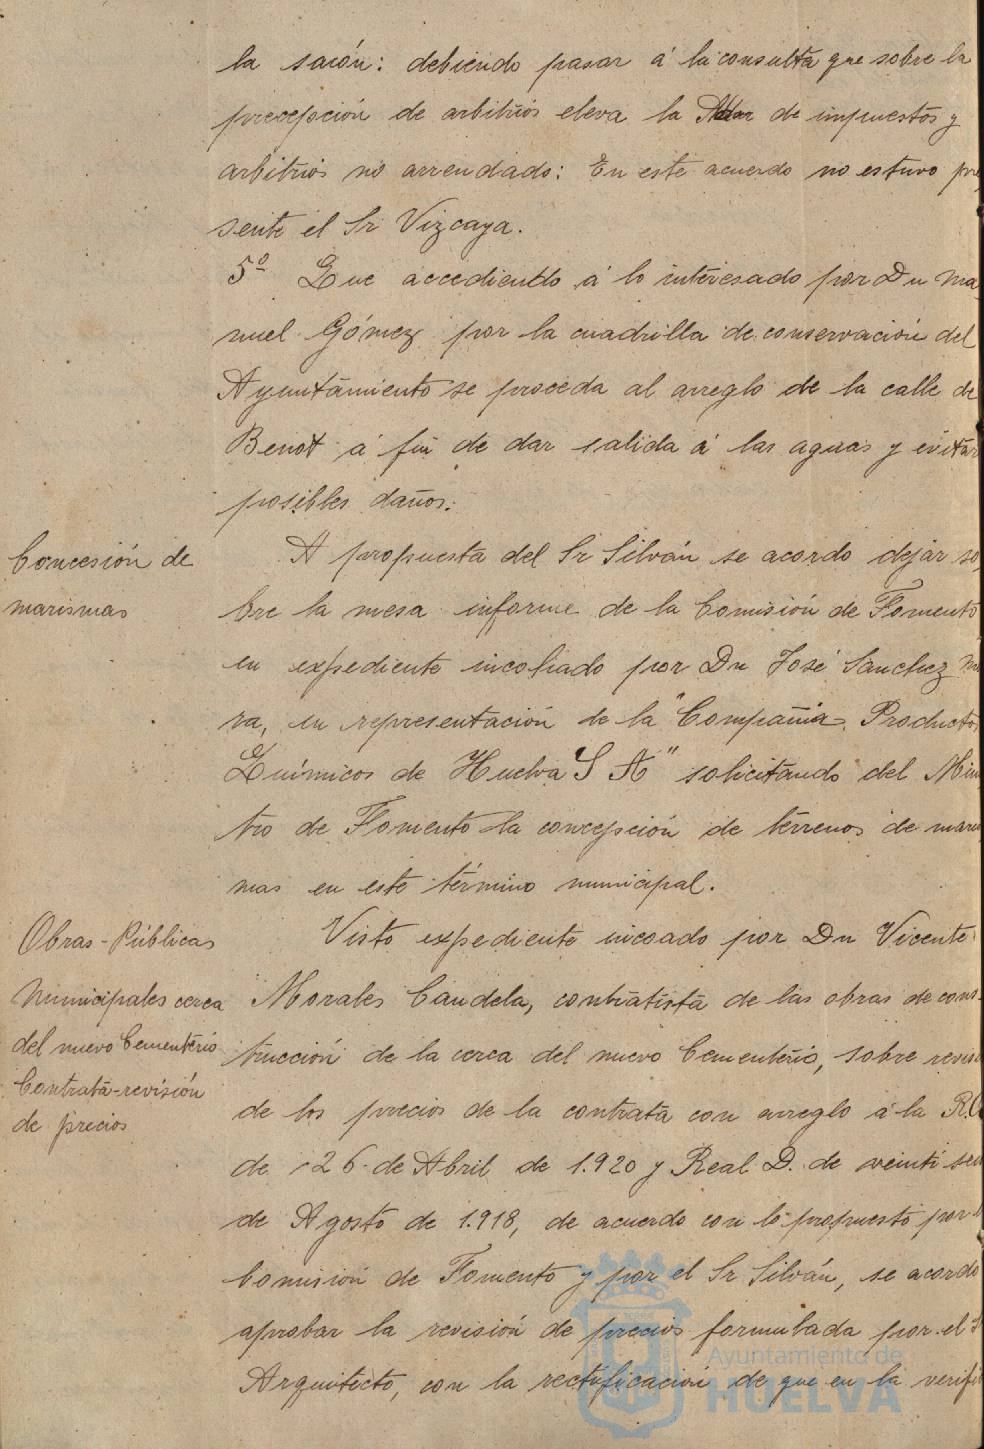 la saión: debiendo pasar á la consulta que sobre la
precepción de arbitrios eleva la de impuestos y
arbitrios no arrendado: En este acuerdo no estuvo pre
sente el Sr Vizcaya.
5º Que accediendo á lo interesado por Dn Ma
nuel Gómez por la cuadrilla de conservación del
Ayuntamiento se proceda al arreglo de la calle de
Benot á fin de dar salida á las aguas y evitar
posibles daños.
Concesión de
marismas
A propuesta del Sr Silván se acordo dejar so
bre la mesa informe de la Comisión de Fomento
en expediente incohado por Dn José Sanchez Mo
ra, en representación de la "Compañia Productos
Químicos de Huelva S A" solicitando del Minis
tro de Fomento la concepción de terrenos de maris
mas en este término municipal.
Obras-Públicas
Municipales cerca
del nuevo Cementerio
Contrata-revisión
de precios
Visto expediente incoado por Dn Vicente
Morales Candela, contratista de las obras de cons-
trucción de la cerca del nuevo Cementerio, sobre revisi
de los precios de la contrata con arreglo á la R.O
de 26 de Abril de 1.920 y Real D. de veinti seis
de Agosto de 1.918, de acuerdo con lo propuesto por l
Comisión de Fomento y por el Sr Silván, se acordo
aprobar la revisión de precios formulada por el S
Arquitecto, con la rectificación de que en la verifi
Ayuntamiento de
HUELVA